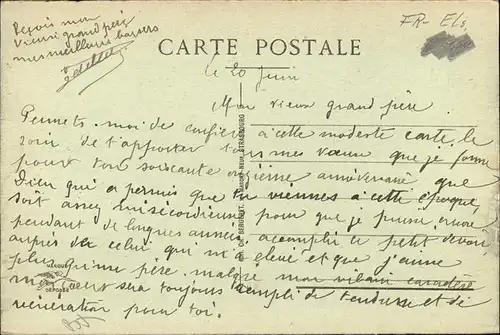 Reçois mon
vieux grand père
mes meilleurs baisers
FR- Els
CARTE POSTALE
le 20 Juin
Mon vieux grand père
Permets-moi de confier à cette modeste carte, le
soin de t'apporter tous mes vœux que je forme
pour ton soixante onzième anniversaire que
Dieu qui a permis que tu viennes à cette époque,
soit assez miséricordieux pour que je puisse encore
pendant de longues années accomplir ce petit devoir
auprès de celui qui m'a élevé et que j'aime
plus qu'un père, malgré mon vilain caractère
mon cœur sera toujours rempli de tendresse et de
vénération pour toi.
DÉPOSÉE